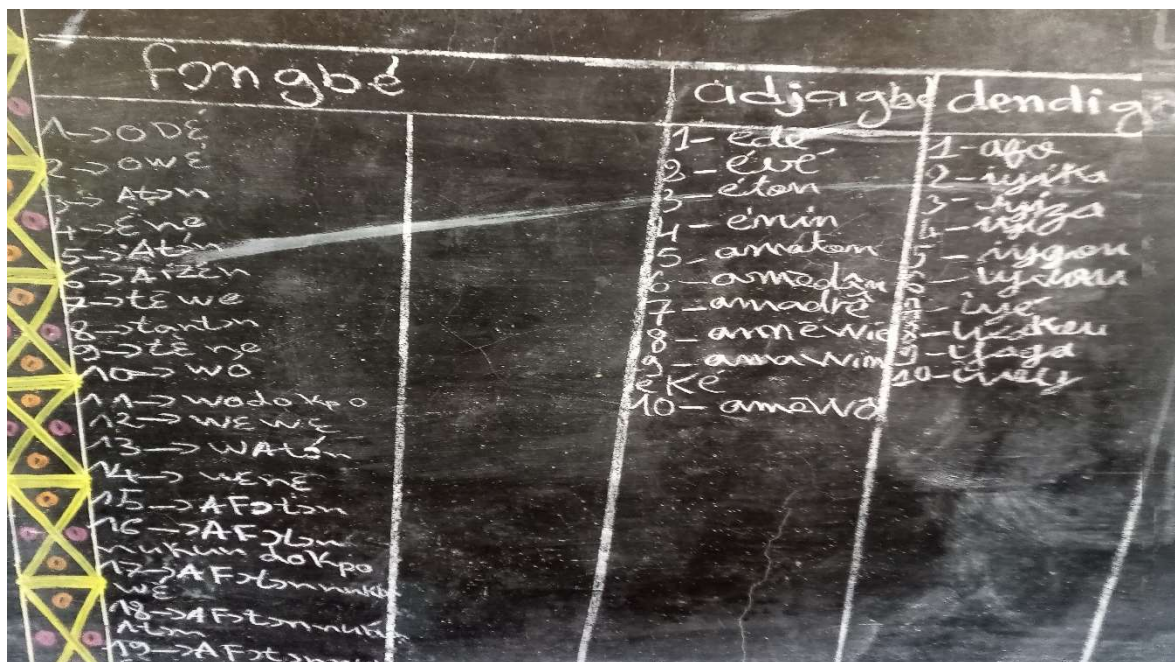 fɔngbé
1 → ODÉ
2 → OWÉ
3 → Atɔn
4 → Éne
5 → Atɔ́n
6 → AIZĚN
7 → tɛ̃we
8 → tantɔn
9 → tɛ̃ne
10 → wo
11 → wodokpo
12 → wɛwɛ
13 → WAtɔ́n
14 → wɛnɛ
15 → AFɔtɔn
16 → AFɔtɔn
nukun dokpo
17 → AFɔtɔnnukun
wɛ
18 → AFɔtɔnnukun
Atɔn
adjagbe
1 - èdé
2 - évé
3 - éton
4 - émin
5 - amatɔn
6 - amedɛ̃n
7 - amadrè
8 - amɛwie
9 - amawim
èké
10 - amewɔ
dendig
1 - afo
2 - iyika
3 - iyiza
5 - iygou
7 - iyé